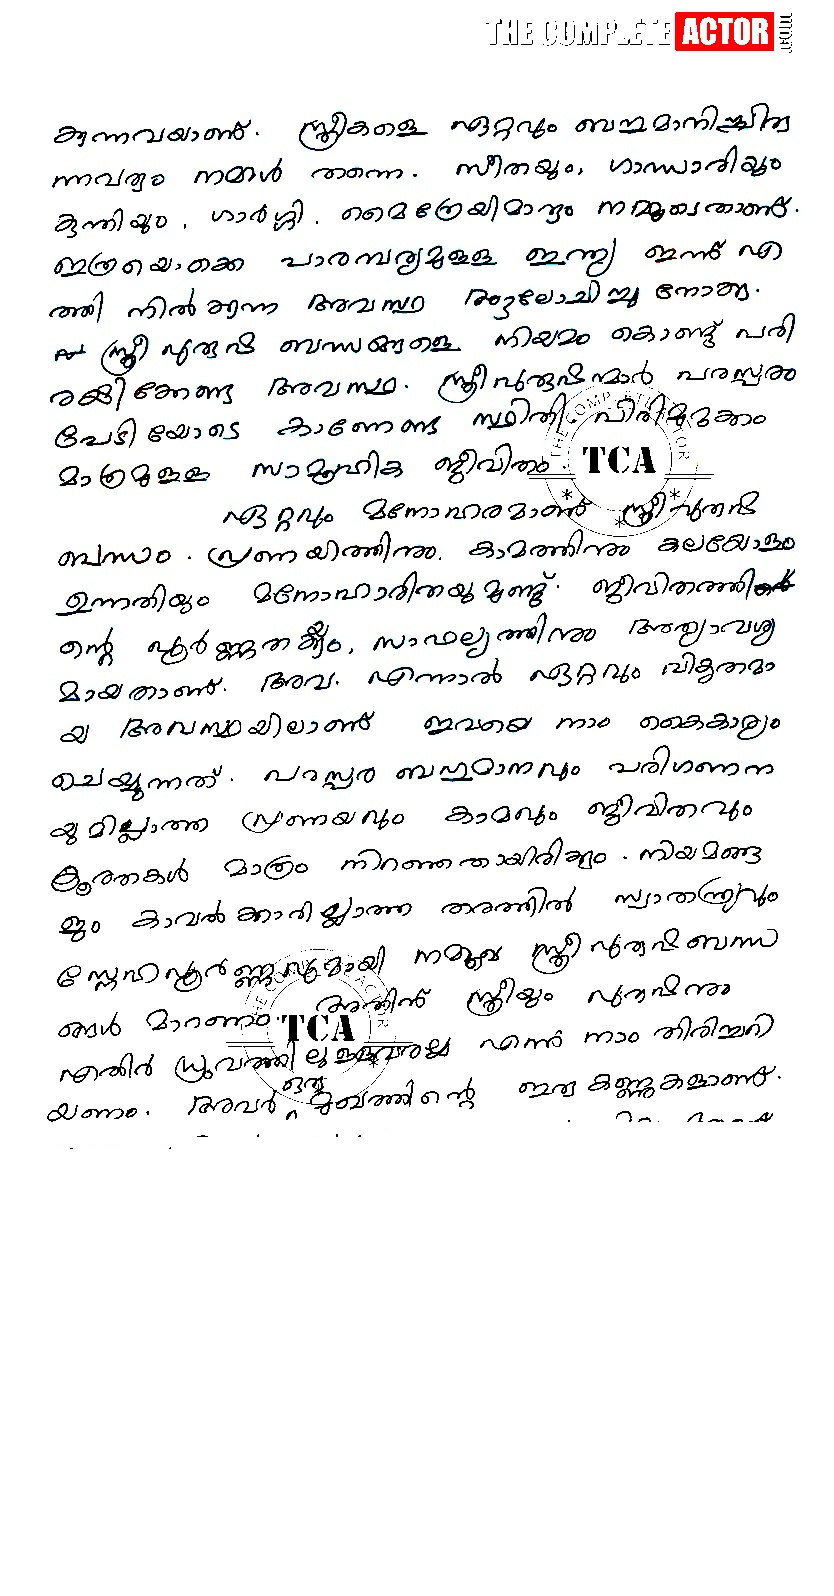 THE COMPLETE ACTOR .COM
കുന്നവയാണ്. സ്ത്രീകളെ ഏറ്റവും ബഹുമാനിച്ചിരു
ന്നവരും നമ്മൾ തന്നെ. സീതയും, ഗാന്ധാരിയും
കുന്തിയും, ഗാർഗ്ഗി, മൈത്രേയിമാരും നമ്മുടെതാണ്.
ഇത്രയൊക്കെ പാരമ്പര്യമുള്ള ഇന്ത്യ ഇന്ന് എ
ത്തി നിൽക്കുന്ന അവസ്ഥ ആലോചിച്ചു നോക്കൂ.
സ്ത്രീ പുരുഷ ബന്ധങ്ങളെ നിയമം കൊണ്ട് പരി
രക്ഷിക്കേണ്ട അവസ്ഥ. സ്ത്രീപുരുഷന്മാർ പരസ്പരം
പേടിയോടെ കാണേണ്ട സ്ഥിതി. പിരിമുറുക്കം
മാത്രമുള്ള സാമൂഹിക ജീവിതം.
THE COMPLETE ACTOR
TCA
ഏറ്റവും മനോഹരമാണ് സ്ത്രീപുരുഷ
ബന്ധം. പ്രണയത്തിനും, കാമത്തിനും കലയോളം
ഉന്നതിയും മനോഹാരിതയുമുണ്ട്. ജീവിതത്തി
ന്റെ പൂർണ്ണതക്കും, സാഫല്യത്തിനും അത്യാവശ്യ
മായതാണ് അവ. എന്നാൽ ഏറ്റവും വികൃതമാ
യ അവസ്ഥയിലാണ് ഇവയെ നാം കൈകാര്യം
ചെയ്യുന്നത്. പരസ്പര ബഹുമാനവും പരിഗണന
യുമില്ലാത്ത പ്രണയവും കാമവും ജീവിതവും
ക്രൂരതകൾ മാത്രം നിറഞ്ഞതായിരിക്കും. നിയമങ്ങ
ളും കാവൽക്കാരില്ലാത്ത തരത്തിൽ സ്വാതന്ത്ര്യവും
സ്നേഹപൂർണ്ണവുമായി നമ്മുടെ സ്ത്രീപുരുഷബന്ധ
ങ്ങൾ മാറണം. അതിന് സ്ത്രീയും പുരുഷനും
TCA
എതിർ ധ്രുവത്തിലുള്ളവരല്ല എന്ന് നാം തിരിച്ചറി
യണം. അവർ ഒരു മുഖത്തിന്റെ ഇരു കണ്ണുകളാണ്.